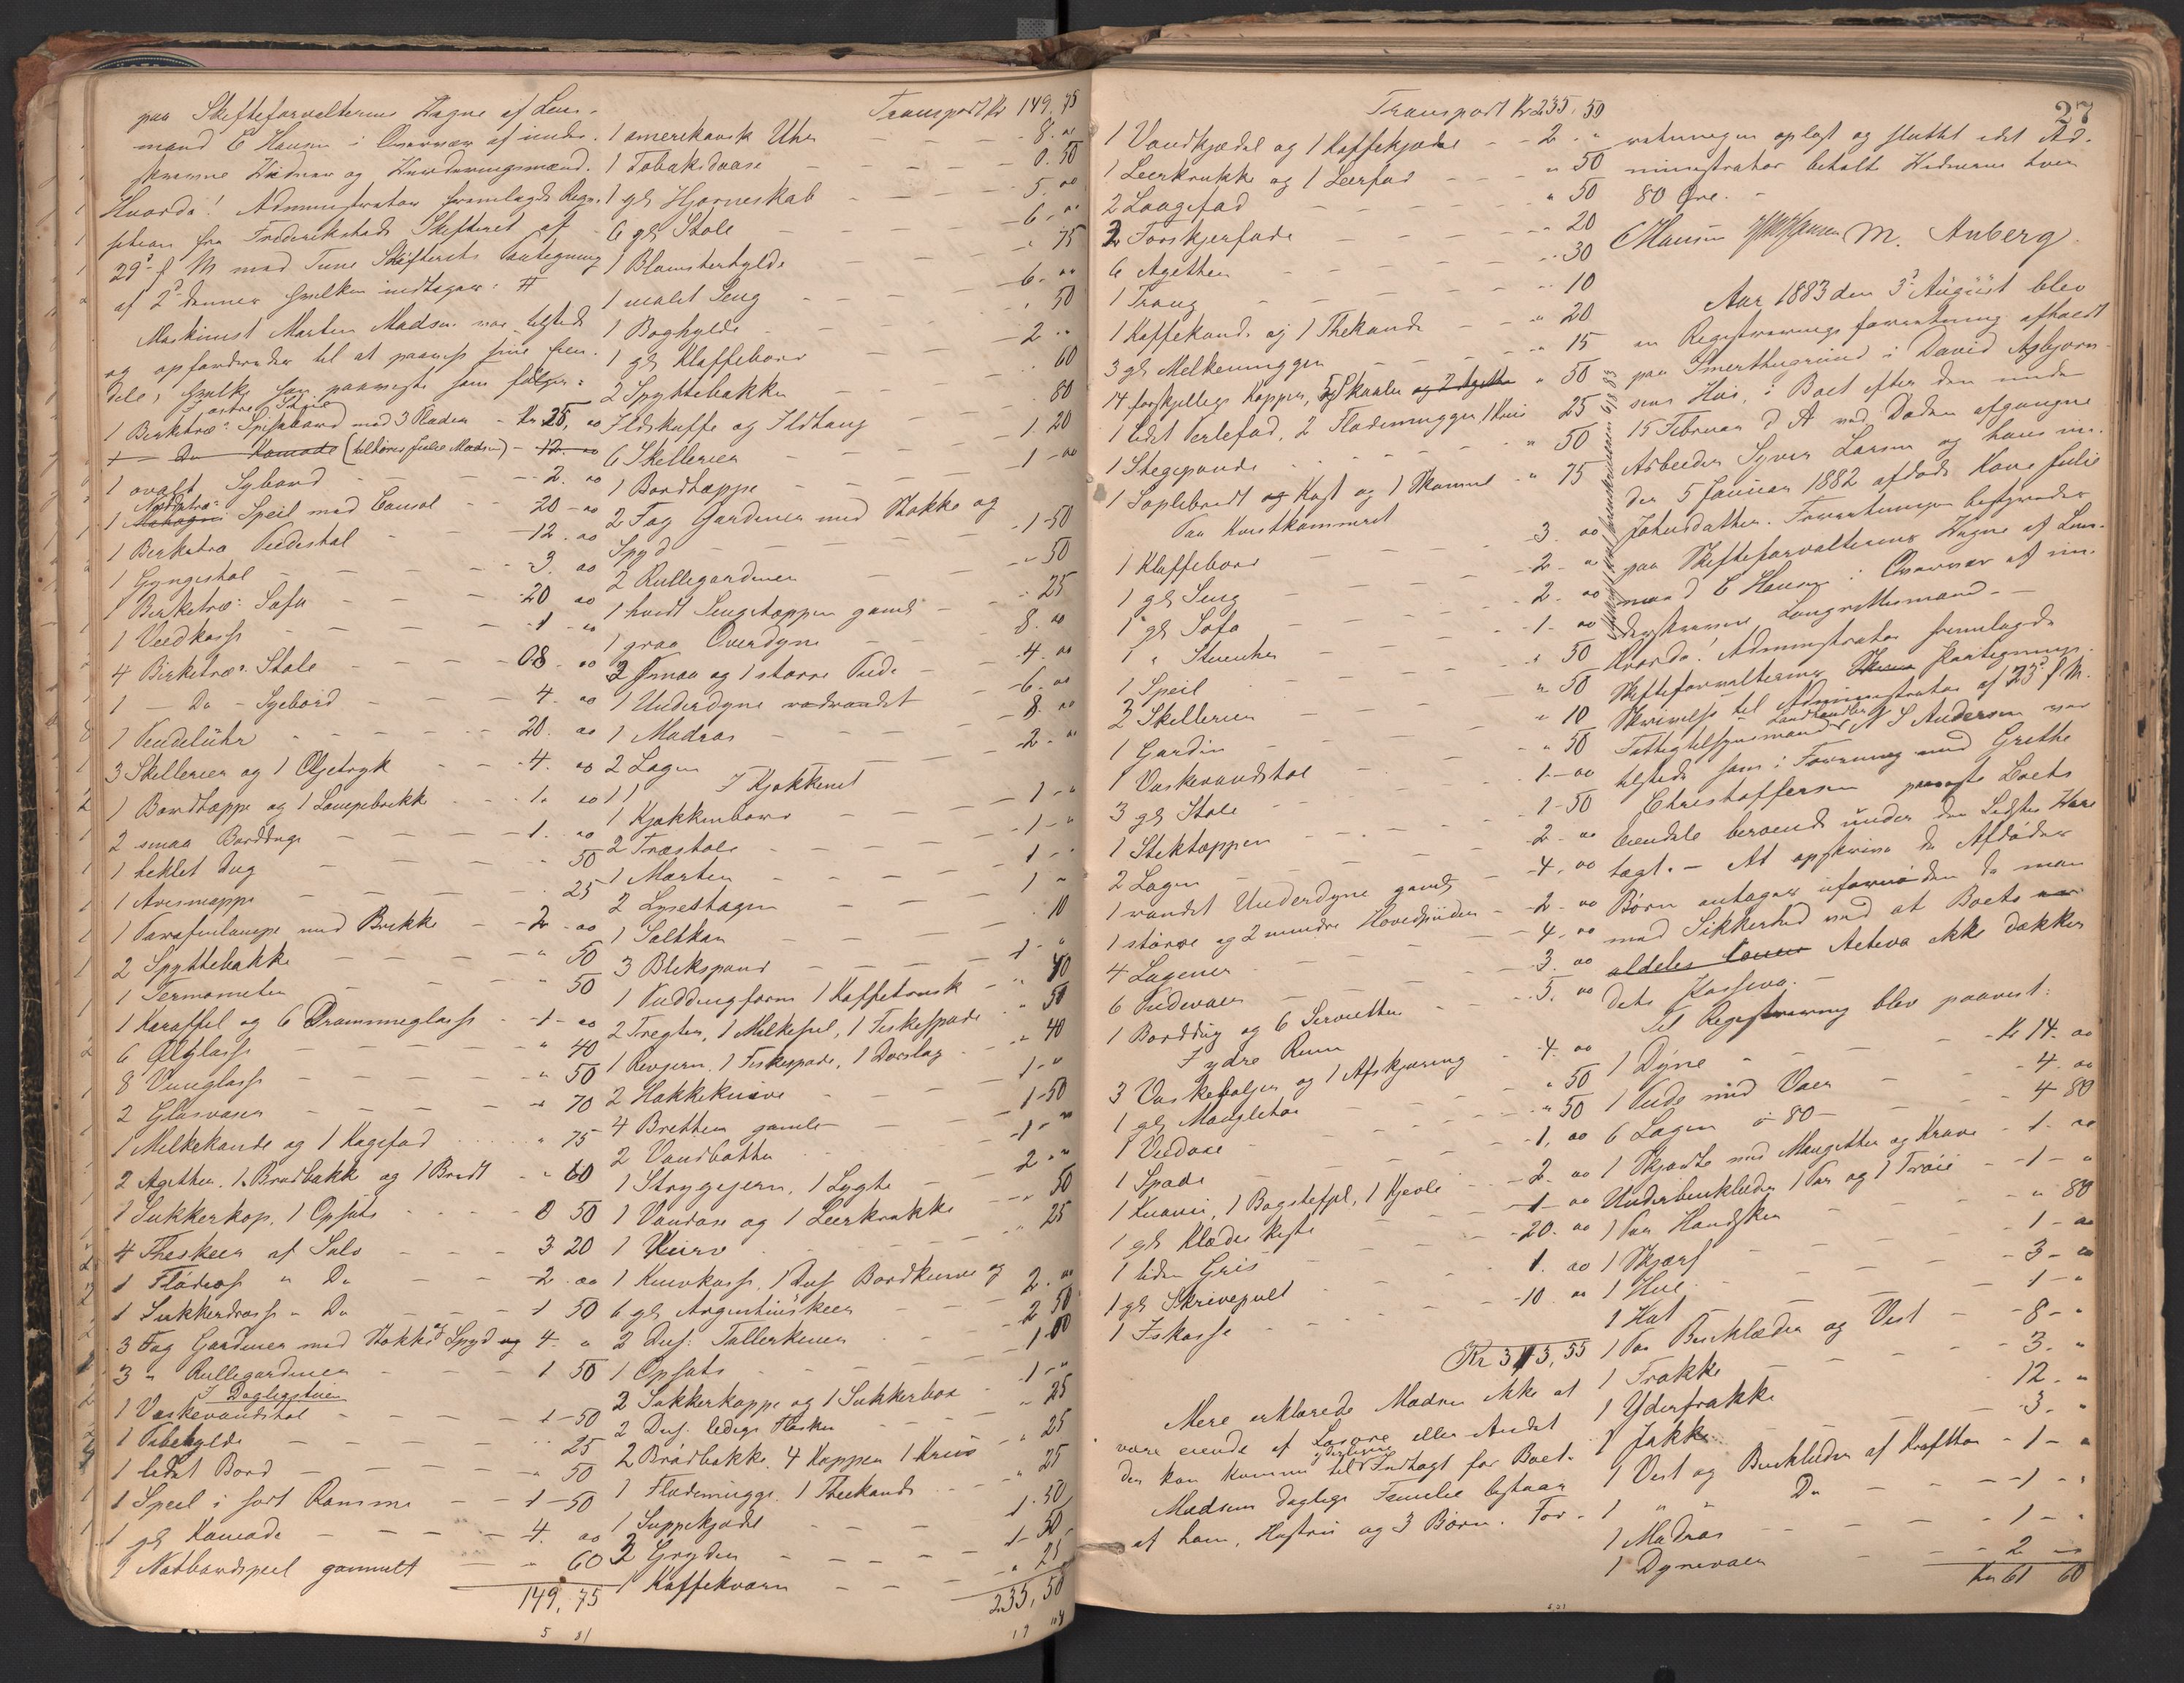 paa Skifteforvalterens Vegne af Lens-
mand C Hansen i Overvær af unde-
skrevne Vidner og Vurderingsmænd.
Hvorda! Administrator fremlagde Requi-
sition fra Frederikstads Skifteret af
29de f M med Tune Skifterets Paategning
af 2den dennes hvilken indtages: #
Maskinist Martin Madsen var tilstede
og opfordredes til at paavise sine Eien-
dele, hvilke han paaviste som følger:
I østre Stue
1 Birketræs Spisebord med 3 Plader - Kr 25, 00
1 — Do Komode (tilhører Julie Madsen) - 12. 00
1 ovalt Sybord - 2. 00
Nøddetræ
1 Mahogni Speil med Consol - 20 - 00
1 Birketræ Pidestal - 12. 00
1 Gyngestol - 3. 00
1 Birketræs Sofa - 20 00
1 Vedkasse - 1 - 00
4 Birketræs Stole - 08. 00
1 — Do - Syebord - 4. 00
1 Pendeluhr - 20. 00
3 Skillerier og 1 Oljetryk - 4. 00
1 Bordtæppe og 1 Lampebrikke - 1. 00
2 smaa Bordduge - 1. 00
1 heklet Dug - 50
1 Avismappe - 25
1 Parafinlampe med Brikke - 2 - 00
2 Spyttebakke - " 50
1 Termometer - " 50
1 Karaffel og 6 Dramme­glasse - 1 - 00
6 Ølglasse - " 40
8 Vinglasse - " 50
2 Glasvaser - " 70
1 Melkekande og 1 Kagefad " 75
2 Asjetter. 1 Brødbakke og 1 Bredt - " 60
1 Sukkerkop. 1 Opsats - 0 50
4 Theskeer af Sølv - 3 20
1 Flødeøse " Do - 2. 00
1 Sukkerdrosse " Do - 1 50
3 Fag Gardiner med Stokke og Spyd og 4. "
3 " Rullegardiner - 1 50
I Dagligstuen
1 Vaskevandstol - 1 - 50
1 Pibehylde - 25
1 lidet Bord - " 50
1 Speil i sort Ramme - 1 - 50
1 gl Komode - 4. 00
1 Natbordspeil gammelt - " 60
149, 75
Transport Kr 149. 75
1 amerikansk Uhr - 8. 00
1 Tobaksdaase - 0. 50
1 gl Hjørneskab - 5. 00
6 gl Stole - 6 - 00
1 Blomsterhylde - " 75
1 malet Seng - 6 - 00
1 Boghylde - " 50
1 gl Klaffebord - 2 "
2 Spyttebakker 60
Ildskuffe og Ildtang - 80
6 Skillerier - 1. 20
1 Bordtæppe - 1 - 00
2 Fag Gardiner med Stokke og
Spyd - 1 - 50
2 Rullegardiner - " 50
1 hvidt Sengetæppe gamle - 25
1 graa Overdyne - 8. 00
2 smaa og 1 større Pude - 4. 00
1 Underdyne rødrandet - 6. 00
1 Madras - 8. 00
2 Lagen - 2. "
I Kjøkkenet
1 Kjøkkenbord - 1 - "
2 Træstole - 1 - "
1 Morter - 1 - "
2 Lysestager 1 "
1 Saltkar - 10
3 Blikspand - 1 - "
1 Puddingform 1 Kaffetragt - 40
2 Tregter, 1 Melkesil, 1 Fiskespade " 50
1 Revjern. 1 Fiskespade. 1 Dørslag - " 40
2 Hakkeknive - 1 - "
4 Bretter gamle - 1 - 50
2 Vandbøtter - 1 - "
1 Strygejern, 1 Lygte - 2. "
1 Vandøse og 1 Leerkrukke - 50
1 Kurv - 25
1 Knivkasse. 1 Dus. Bordknive og
6 gl Argentinskeer 2. "
2 Dus. Tallerkener 2 50
1 Opsats - 1 00
2 Sukkerkoppe og 1 Sukkerbøs - 1 - "
2 Dus. ledige Flasker - 25
2 Brødbakke. 4 Kopper 1 Krus - 25
1 Flødemugge. 1 Thekande " 25
1 Suppekjedel - 1. 50
2 Gryder - 1 - 50
1 Kaffekværn - " 25
235, 50
27
Transport Kr 235. 50
1 Vandkjædel og 1 Kaffekjædel - 2. "
1 Leerkrukke og 1 Leerfad - " 50
2 Laagefad - " 50
2 Torskjerfade - " 20
6 Agetter - 30
1 Traug - 10
1 Kaffekande og 1 Thekande - " 20
3 gl Melkemugger - " 15
14 forskjellige Kopper, 5 Skaaler og 2 Agetter " 50
1 lidet Perlefad. 2 Flødemugger 1 Krus 25
1 Stegepande - " 50
1 Soplebredt og Kost og 1 Skammel " 75
Paa Kvistkammeret
1 Klaffebord - 3. 00
1 gl Seng - 2 - "
1 gl Sofa - 2. 00
1 " Stueuhr - 1 - 00
1 Speil - " 50
2 Skillerier - " 50
1 Gardin - " 10
1 Vaskevandstol - " 50
3 gl Stole - 1 - 00
1 Stiktæppe - 1 - 50
2 Lagen - 2 - 00
1 randet Underdyne gamle - 4. 00
1 større og 2 mindre Hovedpuder - 2 - 00
4 Lagener - 4 - 00
6 Pudevaer - 3. 00
1 Borddug og 6 Servietter - 5. 00
I ydre Rum
3 Vaskebaljer og 1 Afskjæring - 4. 00
1 gl Mangletræ - " 50
1 Vedøxe - " 50
1 Spade - 1, 00
1 Knavi, 1 Bagstefjel, 1 Kjevle - 2. 00
1 gl Klædeskiste - 1 - 00
1 liden Gris - 20. 00
1 gl Skrivepult - 1. 00
1 Iskasse - 10 00
Kr 313, 55
Mere erklærede Madsen ikke at
være eiende af Løsøre eller Andet
der kan komme yderligere til Indtægt for Boet.
Madsens daglige Familie bestaar
af ham, Hustru og 3 Børn. For-
retningen oplæst og sluttet idet Ad-
ministrator betalte Vidnerne hver
80 Øre. -
C Hansen M. Anberg.
Aar 1883 den 3de August blev
en Registreringsforretning afholdt
paa Smerthugrund i David Asbjørn-
sens Hus, i Boet efter den under
15 Februar d A ved Døden afgangne
Arbeider Syver Larsen og hans un-
der 5 Januar 1882 afdøde Kone Julie
Johnsdatter. Forretningen bestyredes
paa Skifteforvalterens Vegne af Lens-
mand C Hansen i Overvær af un-
derskrevne Laugrettesmænd. -
Hvorda! Administrator fremlagde
Skifteforvalterens Paategnings-
Skrivelse til Administrator af 23de f M.
Fattigtilsynsmand Landhandler N S Andersen var
tilstede som i Forening med Grethe
Christoffersen paaviste Boets
Eiendele beroende under den Sidstes Vare
tægt. - At opskrive de Afdødes
Børn antages ufornøden da man
med Sikkerhed ved at Boets
aldeles Activa ikke dækker
dets Passiva. -
Til Registrering blev paavist:
1 Dyne - Kr 14. 00
1 Pude med Vaer - 4. 00
6 Lagen á 80 - 4 80
1 Skjorte med Mangetter og Krave - 1. 00
Underbenklæder 1 Par og 1 Trøie - 1 - "
1 Par Handsker - " 80
1 Skjærf - 1 - 00
1 Hue - 3 - 00
1 Hat - 1 - "
1 Par Benklæder og Vest - 8 - "
1 Frakke - 3. "
1 Yderfrakke - 12. "
1 Jakke - 3. "
1 Vest og Benklæder af Kraftto - 1 - "
1 " " Do - 1 - "
1 Madras - 1 - "
1 Dynevaer - 2 "
Kr 61 60